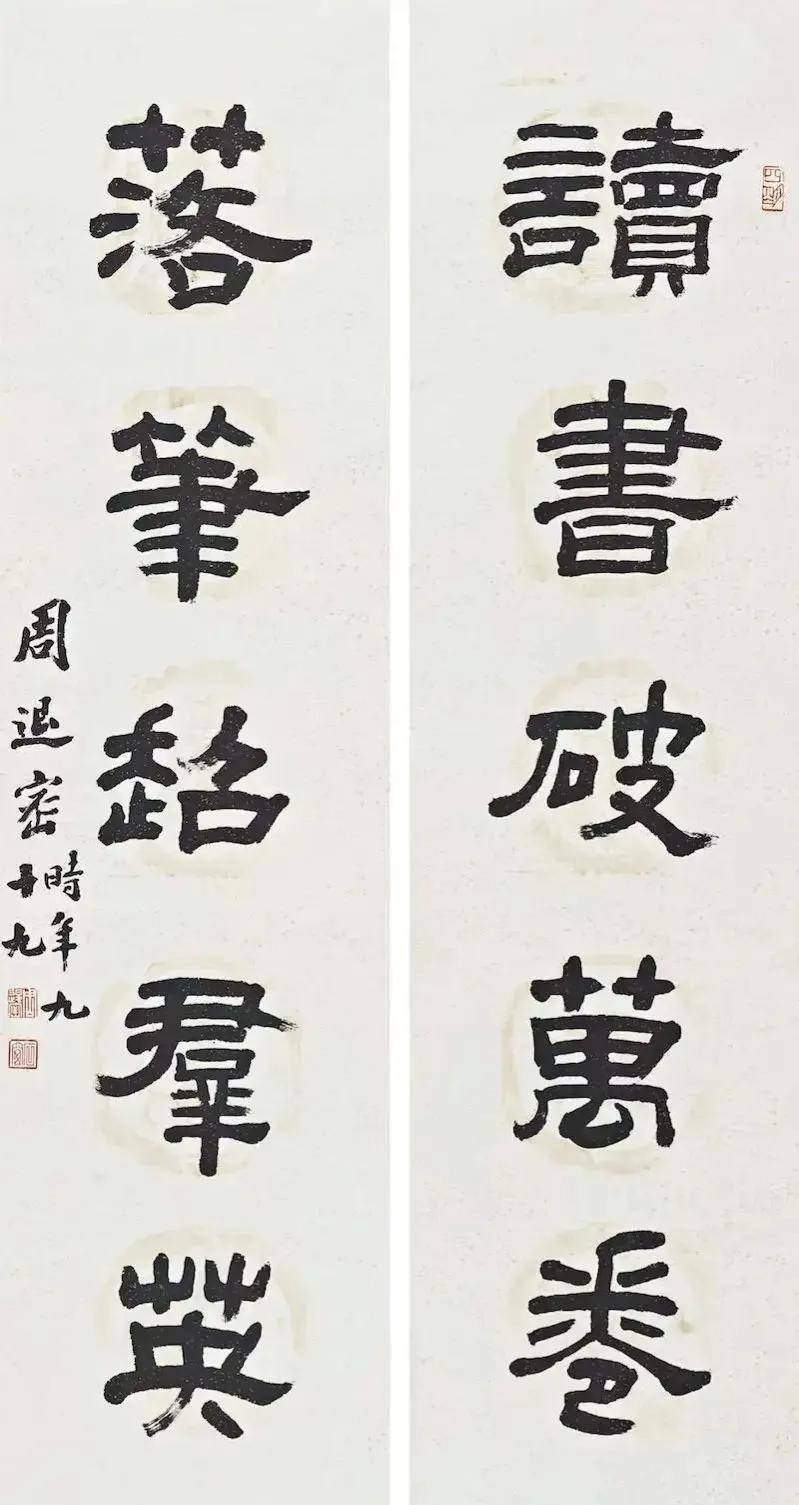 讀書破萬卷
落筆超羣英
周退密
時年九
十九